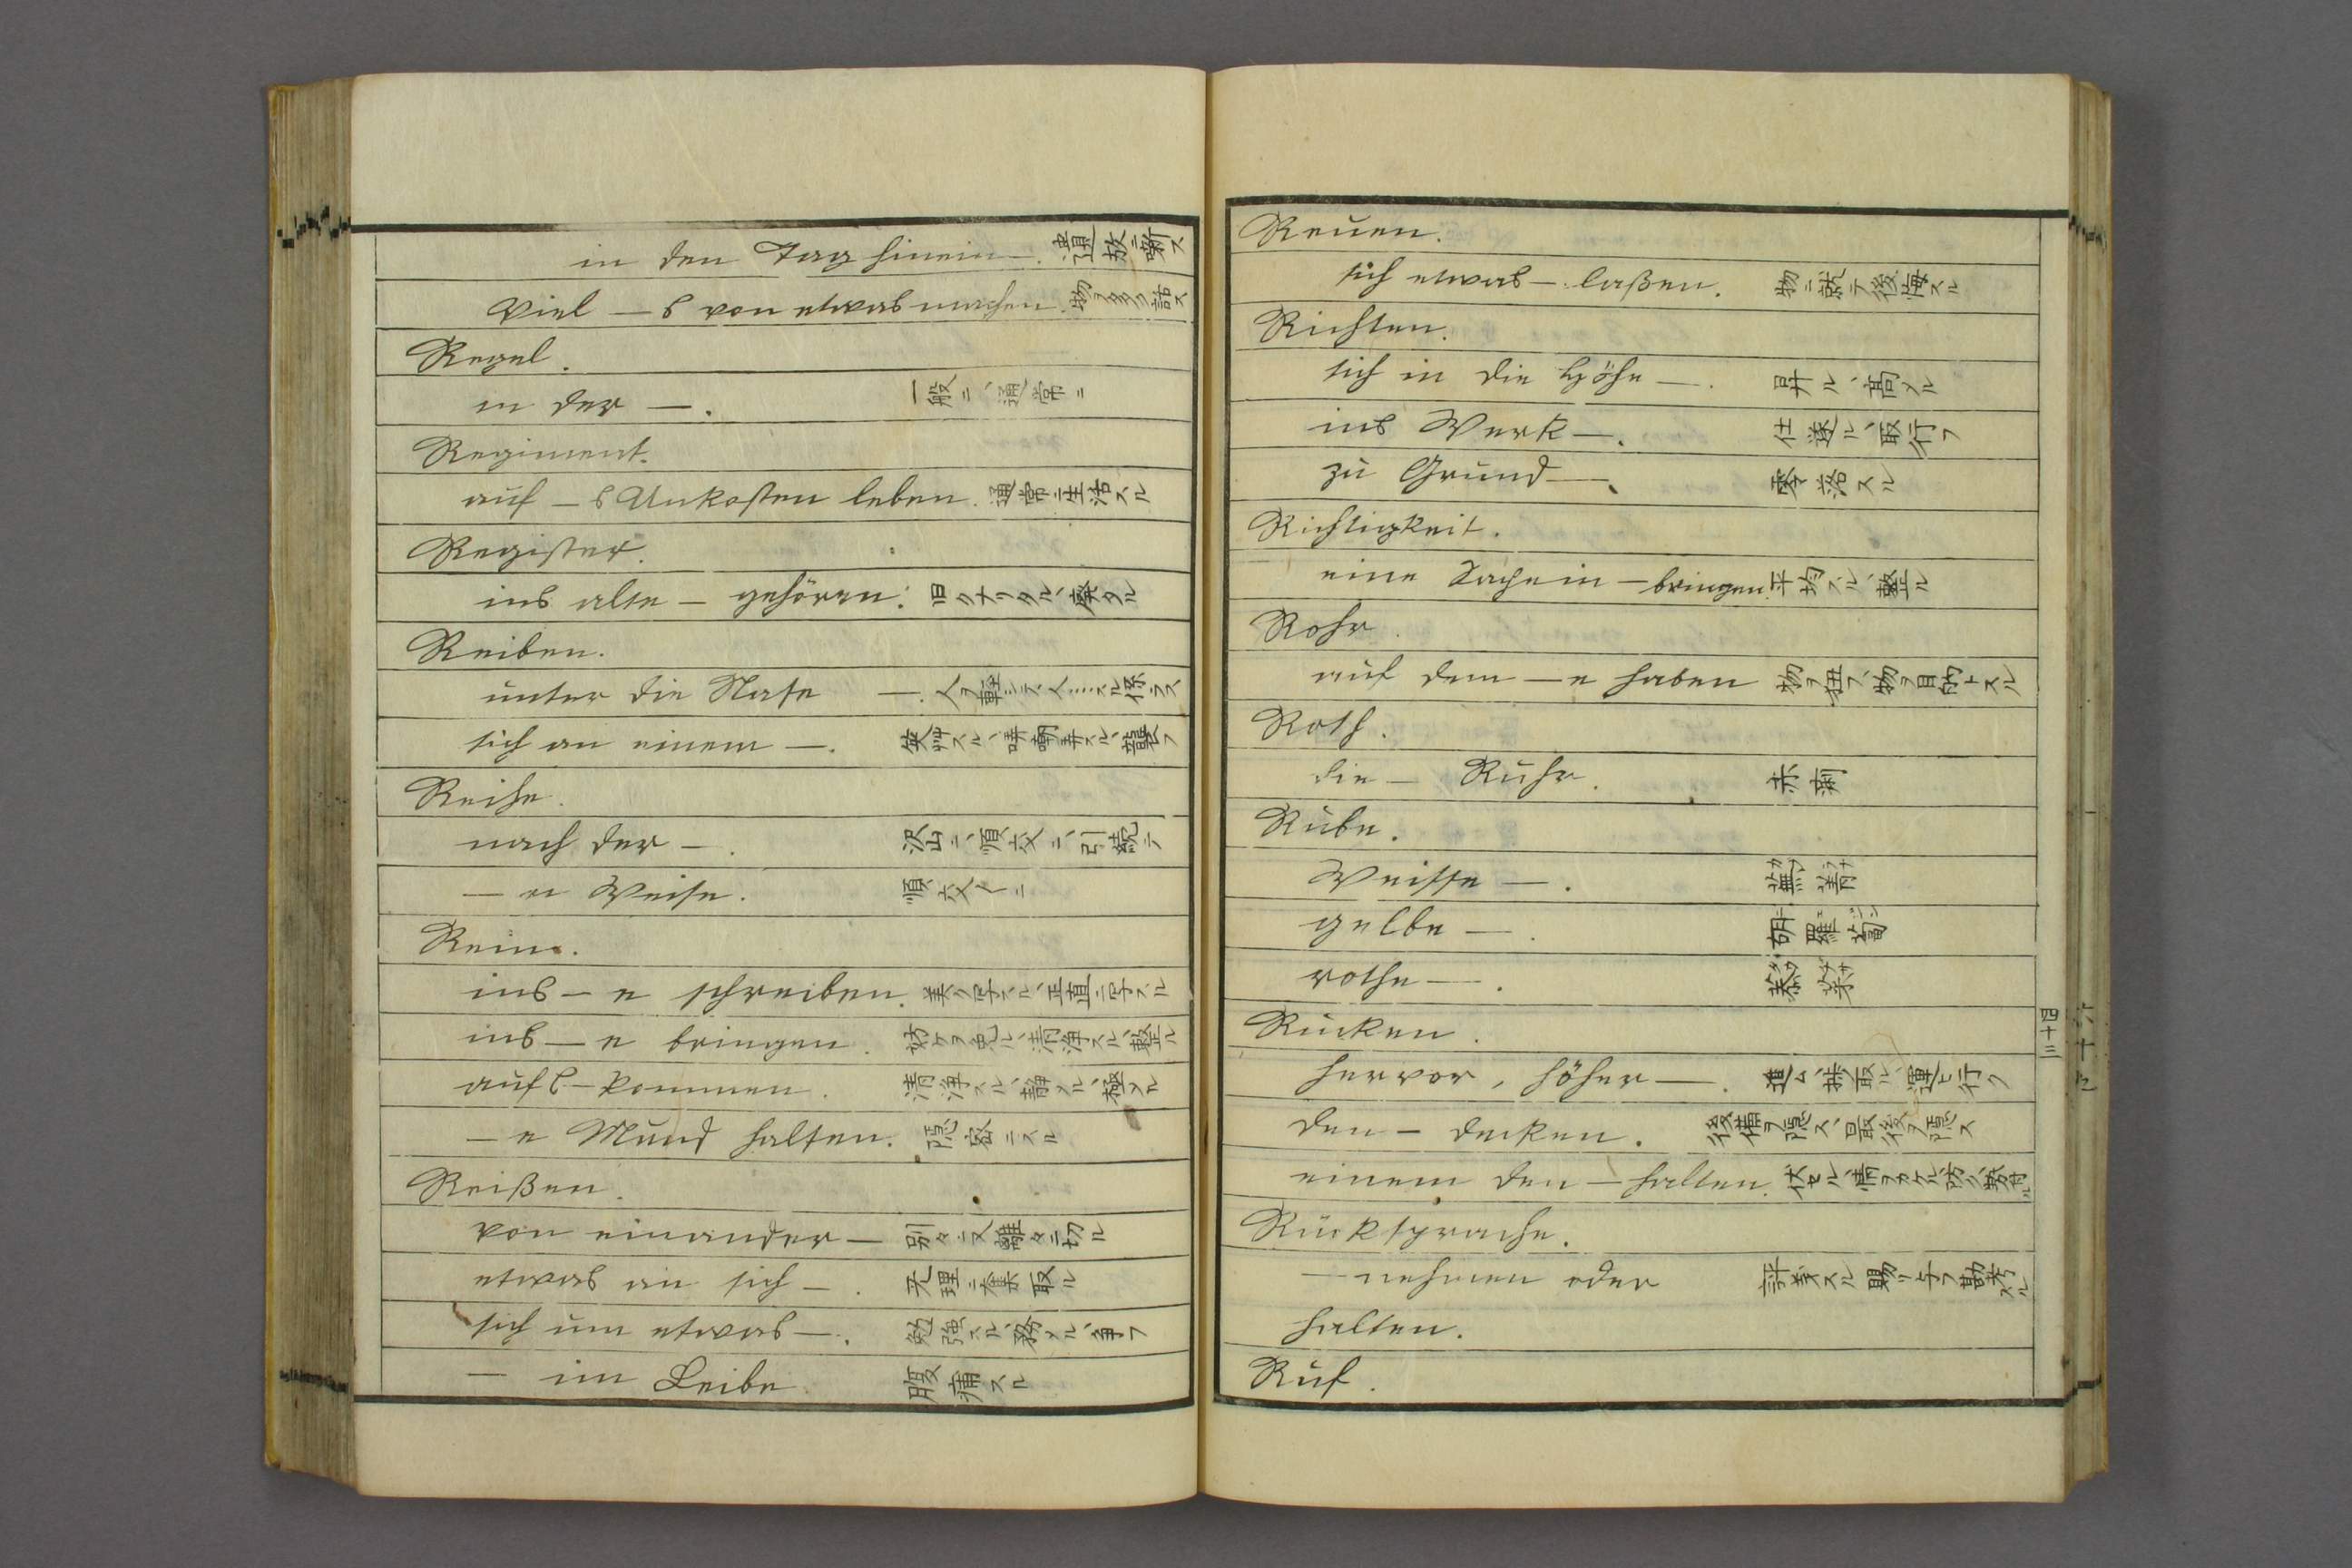 in den Tag hinein —.
Viel — s von etwas machen. 物ヲ多ク話ス
Regel.
in der —. 一般ニ、通常ニ
Regiment.
auf — s Unkosten leben. 通常ニ生活スル
Register.
ins alte — gehören. 旧クナリタル、廃タル
Reiben.
unter die Nase —.
sich an einem —.
Reihe.
nach der —. 沢山ニ、順次ニ、引続テ
— en Weise. 順次〱ニ
Rein.
ins — e schreiben. 美ク写スル、正直ニ写スル
ins — e bringen. 妨ケヲ免ル、清浄スル、整ル
aufs — kommen. 清浄スル、静メル、極メル
— e Mund halten. 隠密ニスル
Reißen.
von einander — 別々ニ又離々ニ切ル
etwas an sich —. 无理ニ集取ル
sich um etwas —. 勉強スル、務メル、争フ
— im Leibe 腹痛スル
Reuen.
sich etwas — laßen. 物ニ就テ後悔スル
Richten.
sich in die Höhe —. 昇ル、高メル
ins Werk —. 仕遂ル、取行フ
zu Grund —. 零落スル
Richtigkeit.
eine Sache in — bringen. 平均スル、整ル
Rohr.
auf dem — e haben 物ヲ狙フ、物ヲ目的トスル
Roth.
die — Ruhr. 赤痢
Rübe.
Weisse —. 蕪菁
gelbe —. 胡羅蔔
rothe —.
Rücken.
hervor, höher —. 進ム、採取ル、運ヒ行ク
den — decken. 後備ヲ隠ス、最後ヲ隠ス
einem den — halten.
Rücksprache.
— nehmen oder 評義スル
halten.
Ruf.
四十三